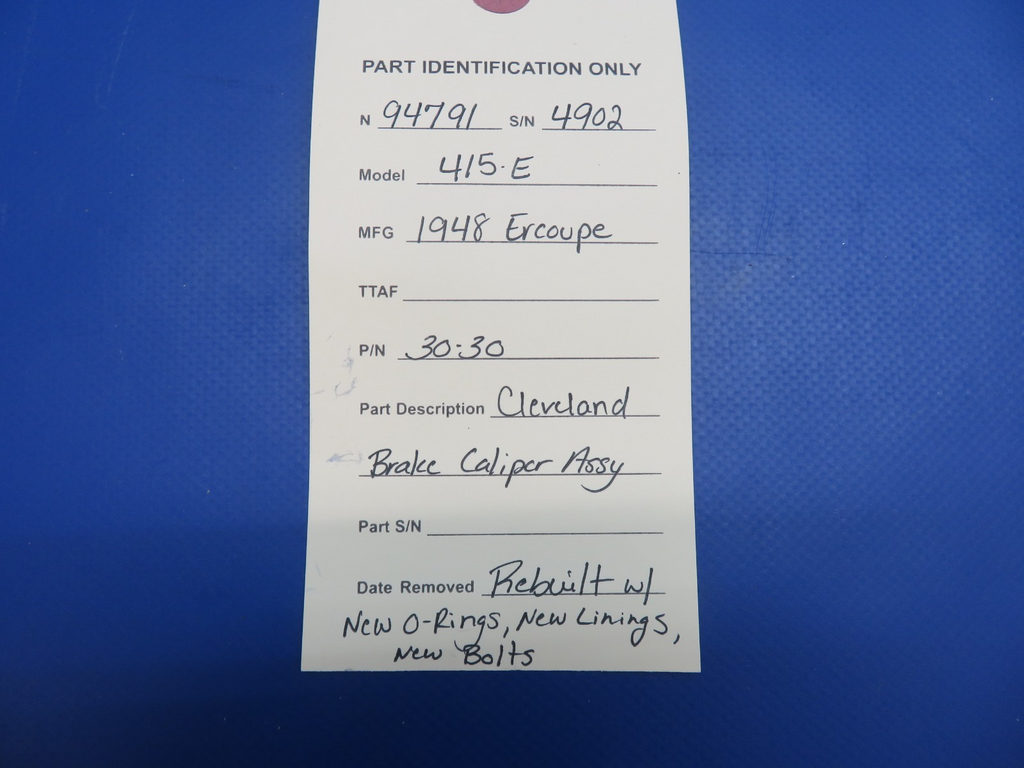 PART IDENTIFICATION ONLY
N 94791 S/N 4902
Model 415-E
MFG 1948 Ercoupe
TTAF
P/N 30-30
Part Description Cleveland
Brake Caliper Assy
Part S/N
Date Removed Rebuilt w/
New O-Rings, New Linings,
New Bolts